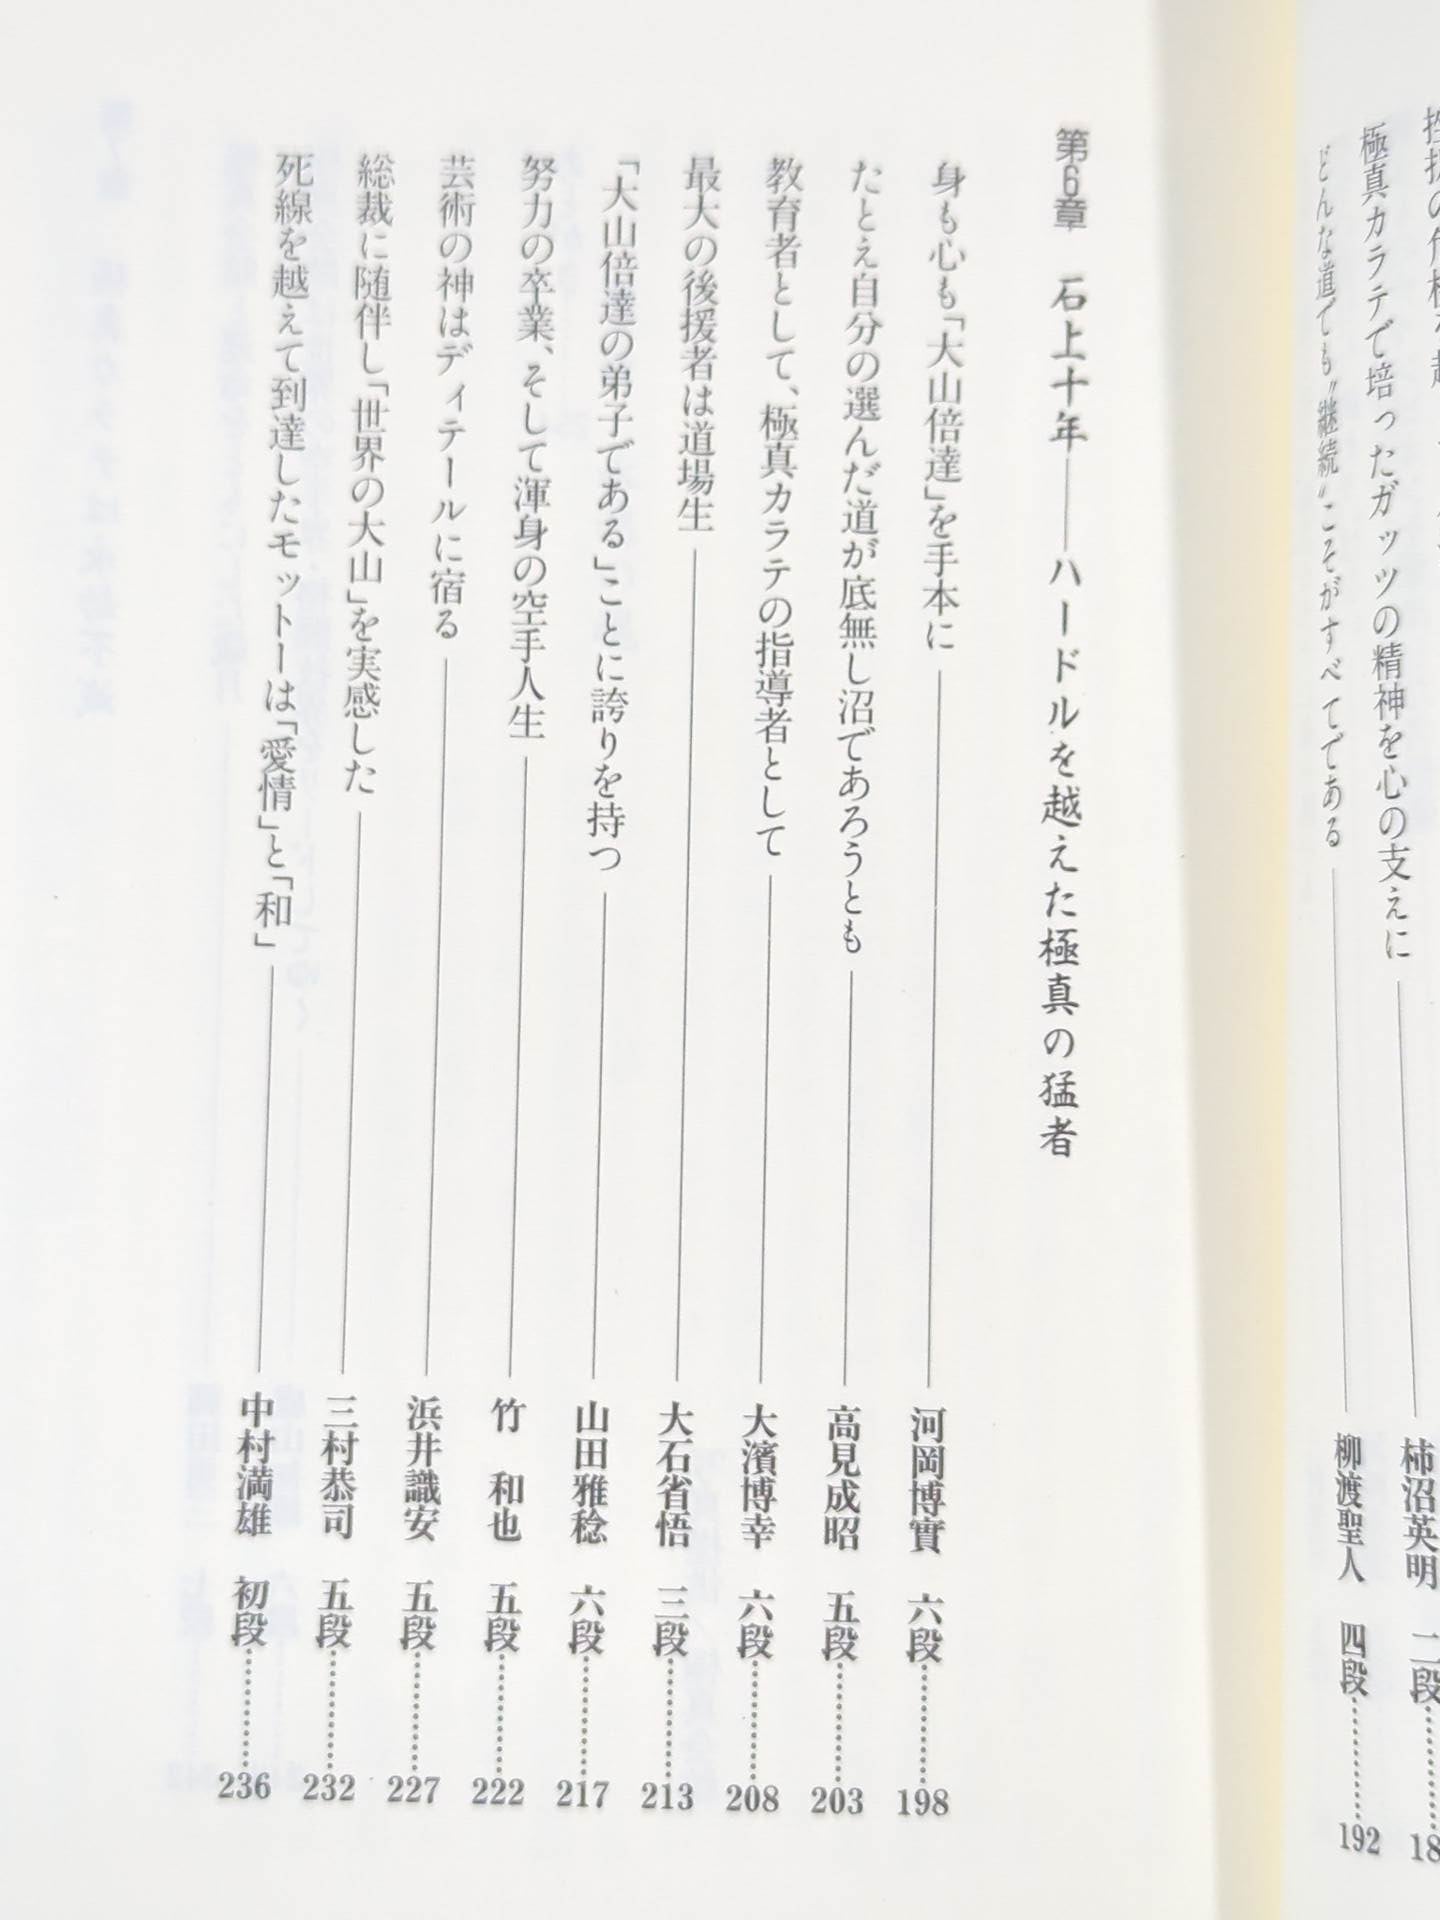 極真カラテで培ったガッツの精神を心の支えに――柿沼英明 二段……
どんな道でも〝継続〟こそがすべてである――柳渡聖人 四段……192
第6章 石上十年――ハードルを越えた極真の猛者
身も心も「大山倍達」を手本に――河岡博實 六段……198
たとえ自分の選んだ道が底無し沼であろうとも――高見成昭 五段……203
教育者として、極真カラテの指導者として――大濱博幸 六段……208
最大の後援者は道場生――大石省悟 三段……213
「大山倍達の弟子である」ことに誇りを持つ――山田雅稔 六段……217
努力の卒業、そして渾身の空手人生――竹 和也 五段……222
芸術の神はディテールに宿る――浜井識安 五段……227
総裁に随伴し「世界の大山」を実感した――三村恭司 五段……232
死線を越えて到達したモットーは「愛情」と「和」――中村満雄 初段……236